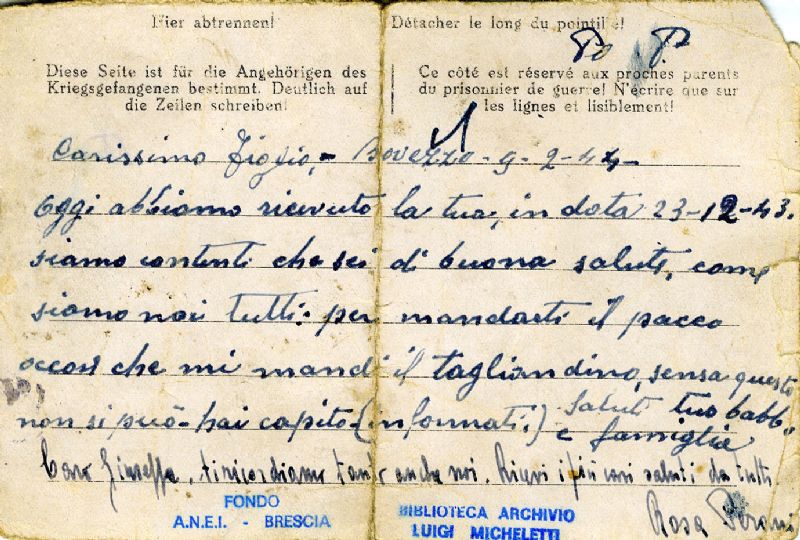 Hier abtrennen!
Détacher le long du pointillé!
Diese Seite ist für die Angehörigen des
Kriegsgefangenen bestimmt. Deutlich auf
die Zeilen schreiben!
Ce côté est réservé aux proches parents
du prisonnier de guerre! N'écrire que sur
les lignes et lisiblement!
Carissimo Figlio, - Bovezzo - 9 - 2 - 44 -
Oggi abbiamo ricevuto la tua, in data 23-12-43.
siamo contenti che sei di buona salute, come
siamo noi tutti: per mandarti il pacco
occore che mi mandi il tagliandino, sensa questo
non si può - hai capito - (informati.) Saluti tuo babbo
e famiglia
Caro Giuseppe, ti ricordiamo tanto anche noi. Ricevi i più cari saluti da tutti
Rosa Peroni
FONDO
A.N.E.I. - BRESCIA
BIBLIOTECA ARCHIVIO
LUIGI MICHELETTI